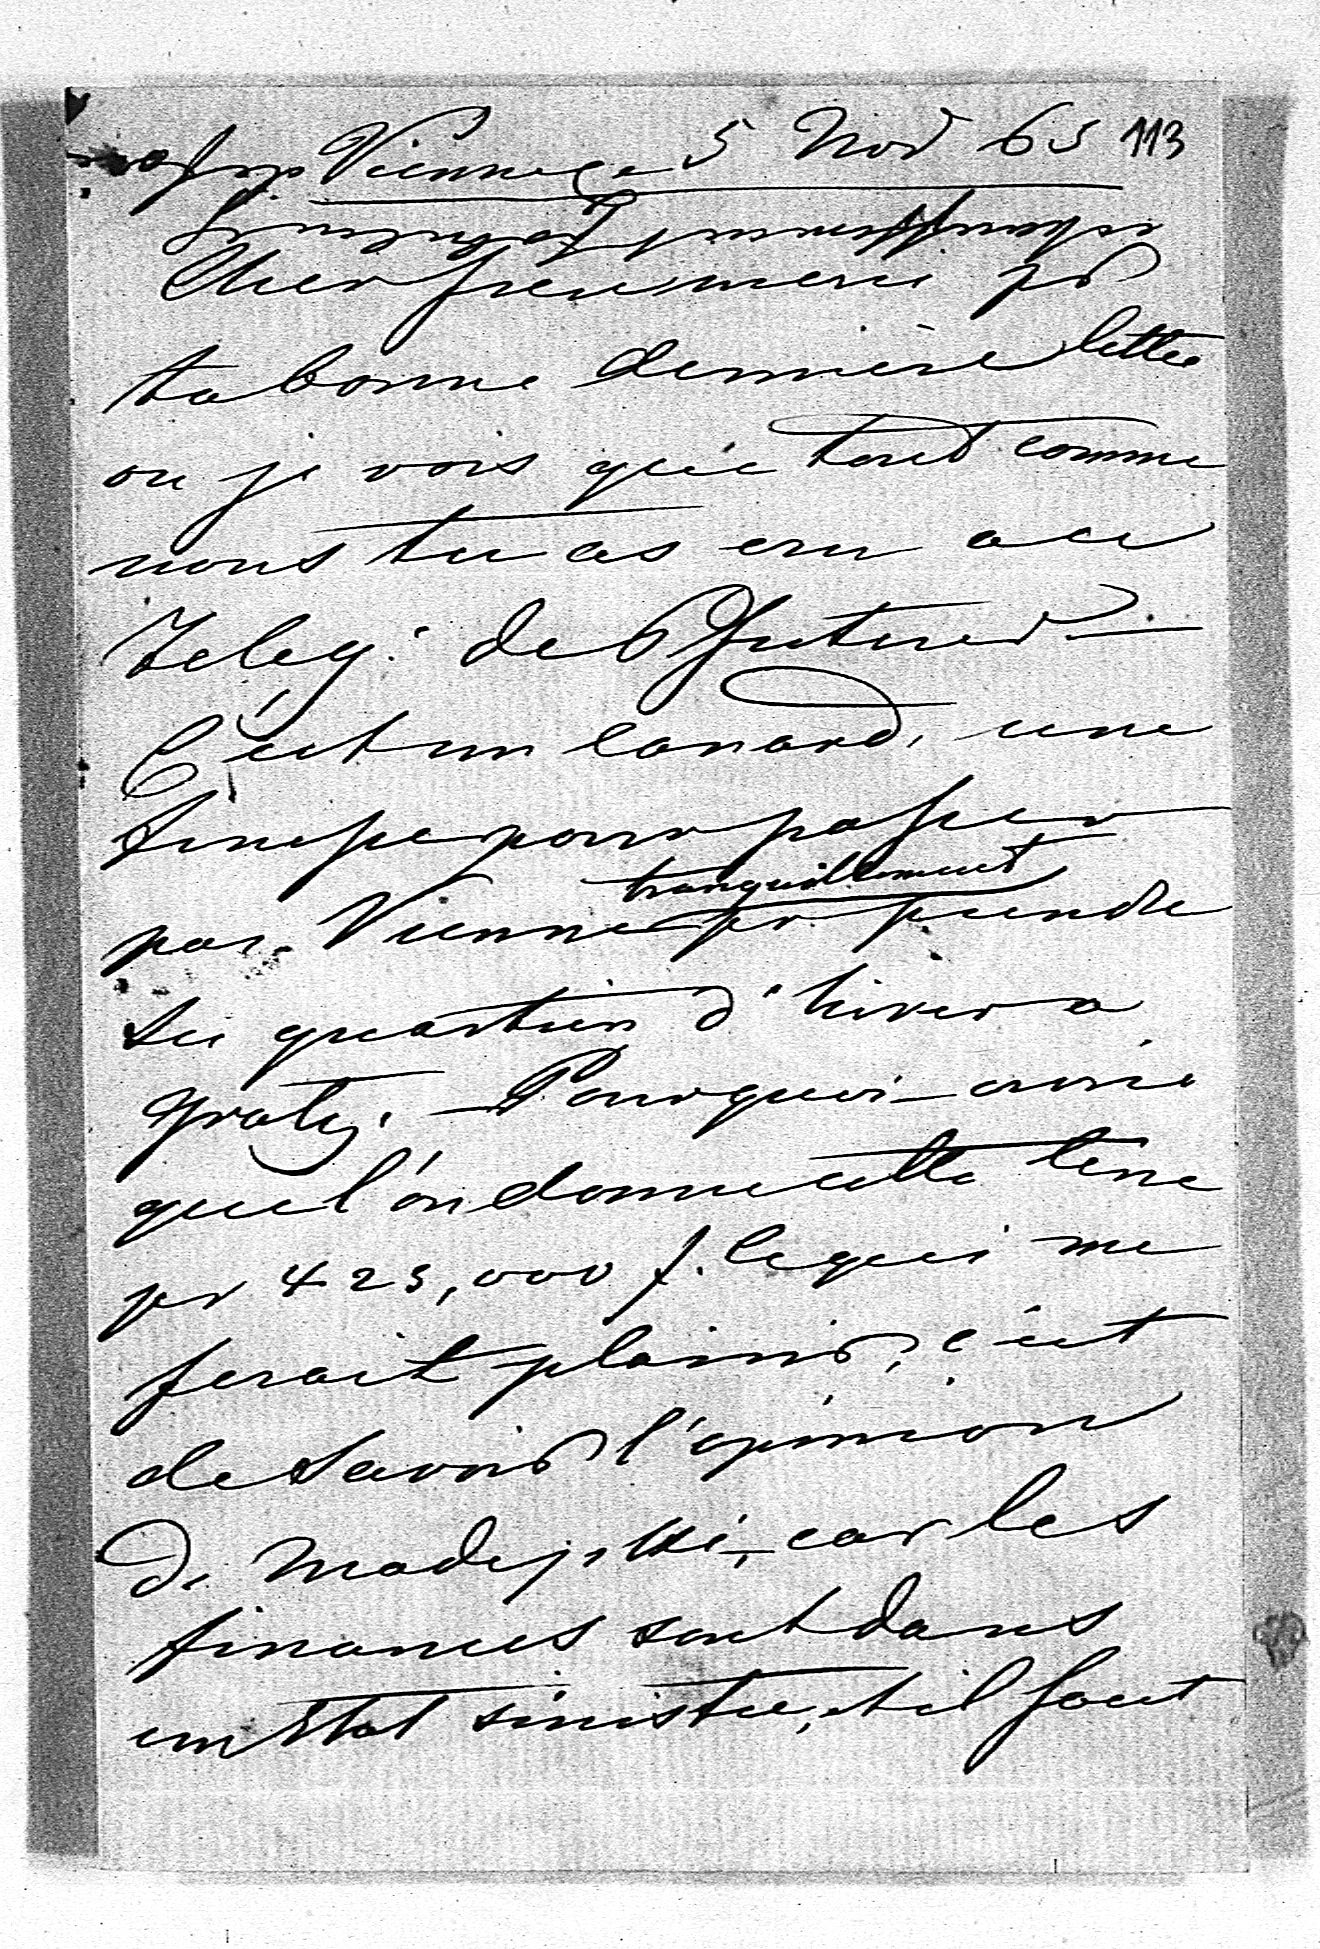 Vienne ce 5 Nov 65 113
Cher frere merci pr
ta bonne dernière lettre
ou je vois que tout comme
nous tu as cru a ce
Teleg: de
C'est un canard, une
pour passer
par Vienne tranquillement pr prendre
ses quartiers d'hiver a
Gratz. — Pourquoi
que l'on donne cette terre
pr 425,000 f. le qui me
ferait plaisir, c'est
de savoir l'opinion
de Madejski, car les
finances sont dans
un Etat sinistre, et il faut